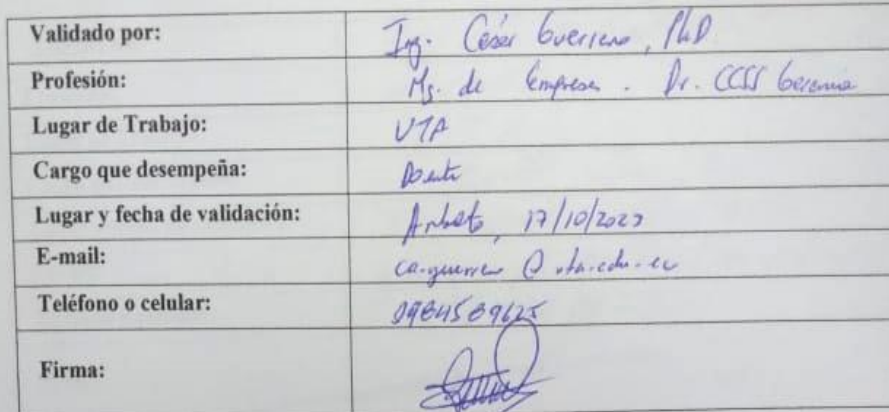 Validado por: Ing. César Guerrero, PhD
Profesión: Mg. de Empresas. Dr. CCSS Gerencia
Lugar de Trabajo: UTA
Cargo que desempeña: Docente
Lugar y fecha de validación: Ambato, 17/10/2023
E-mail: ca.guerrero@uta.edu.ec
Teléfono o celular:
Firma: